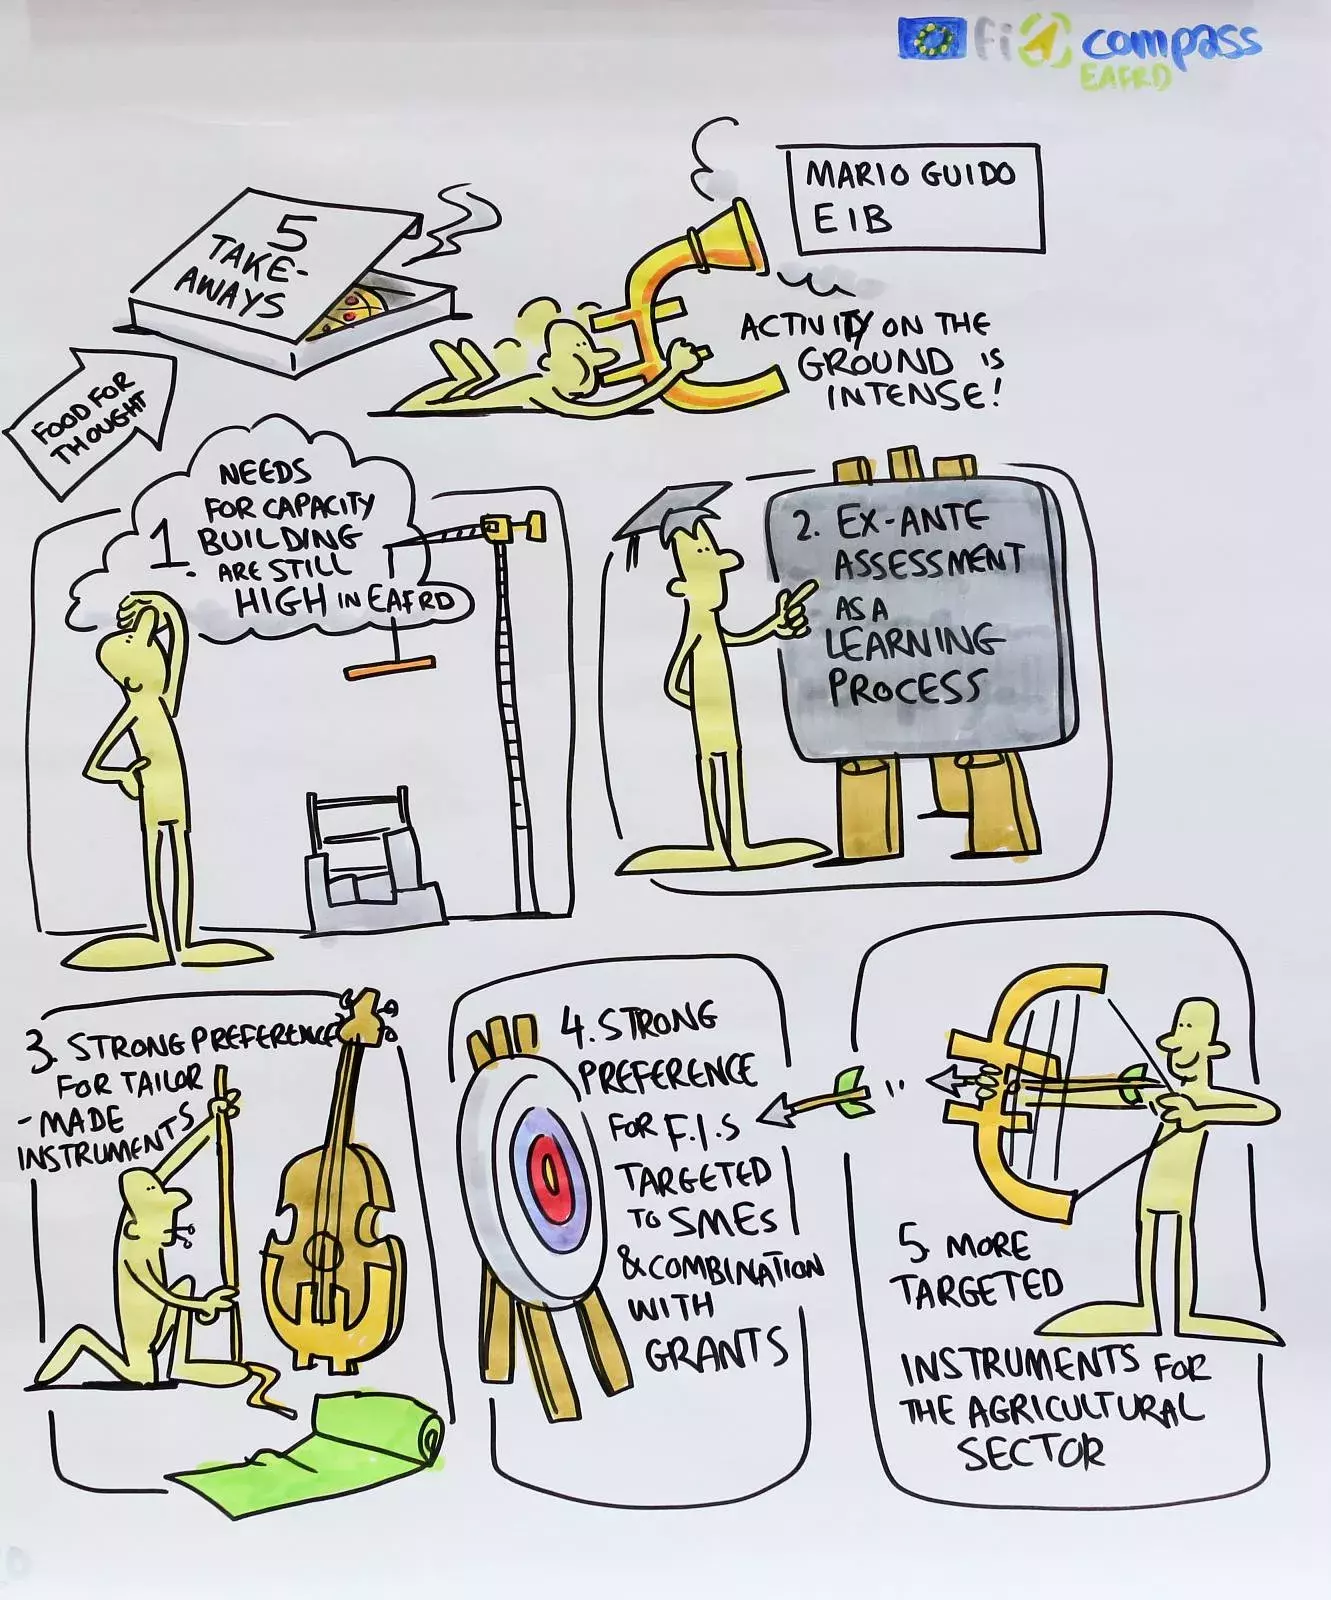 fi compass
EAFRD
MARIO GUIDO
EIB
5
TAKE-
AWAYS
FOOD FOR
THOUGHT
ACTIVITY ON THE
GROUND IS
INTENSE!
1. NEEDS
FOR CAPACITY
BUILDING
ARE STILL
HIGH IN EAFRD
2. EX-ANTE
ASSESSMENT
AS A
LEARNING
PROCESS
3. STRONG PREFERENCE
FOR TAILOR
-MADE
INSTRUMENTS
4. STRONG
PREFERENCE
FOR F.I.S
TARGETED
TO SMEs
& COMBINATION
WITH
GRANTS
5. MORE
TARGETED
INSTRUMENTS FOR
THE AGRICULTURAL
SECTOR